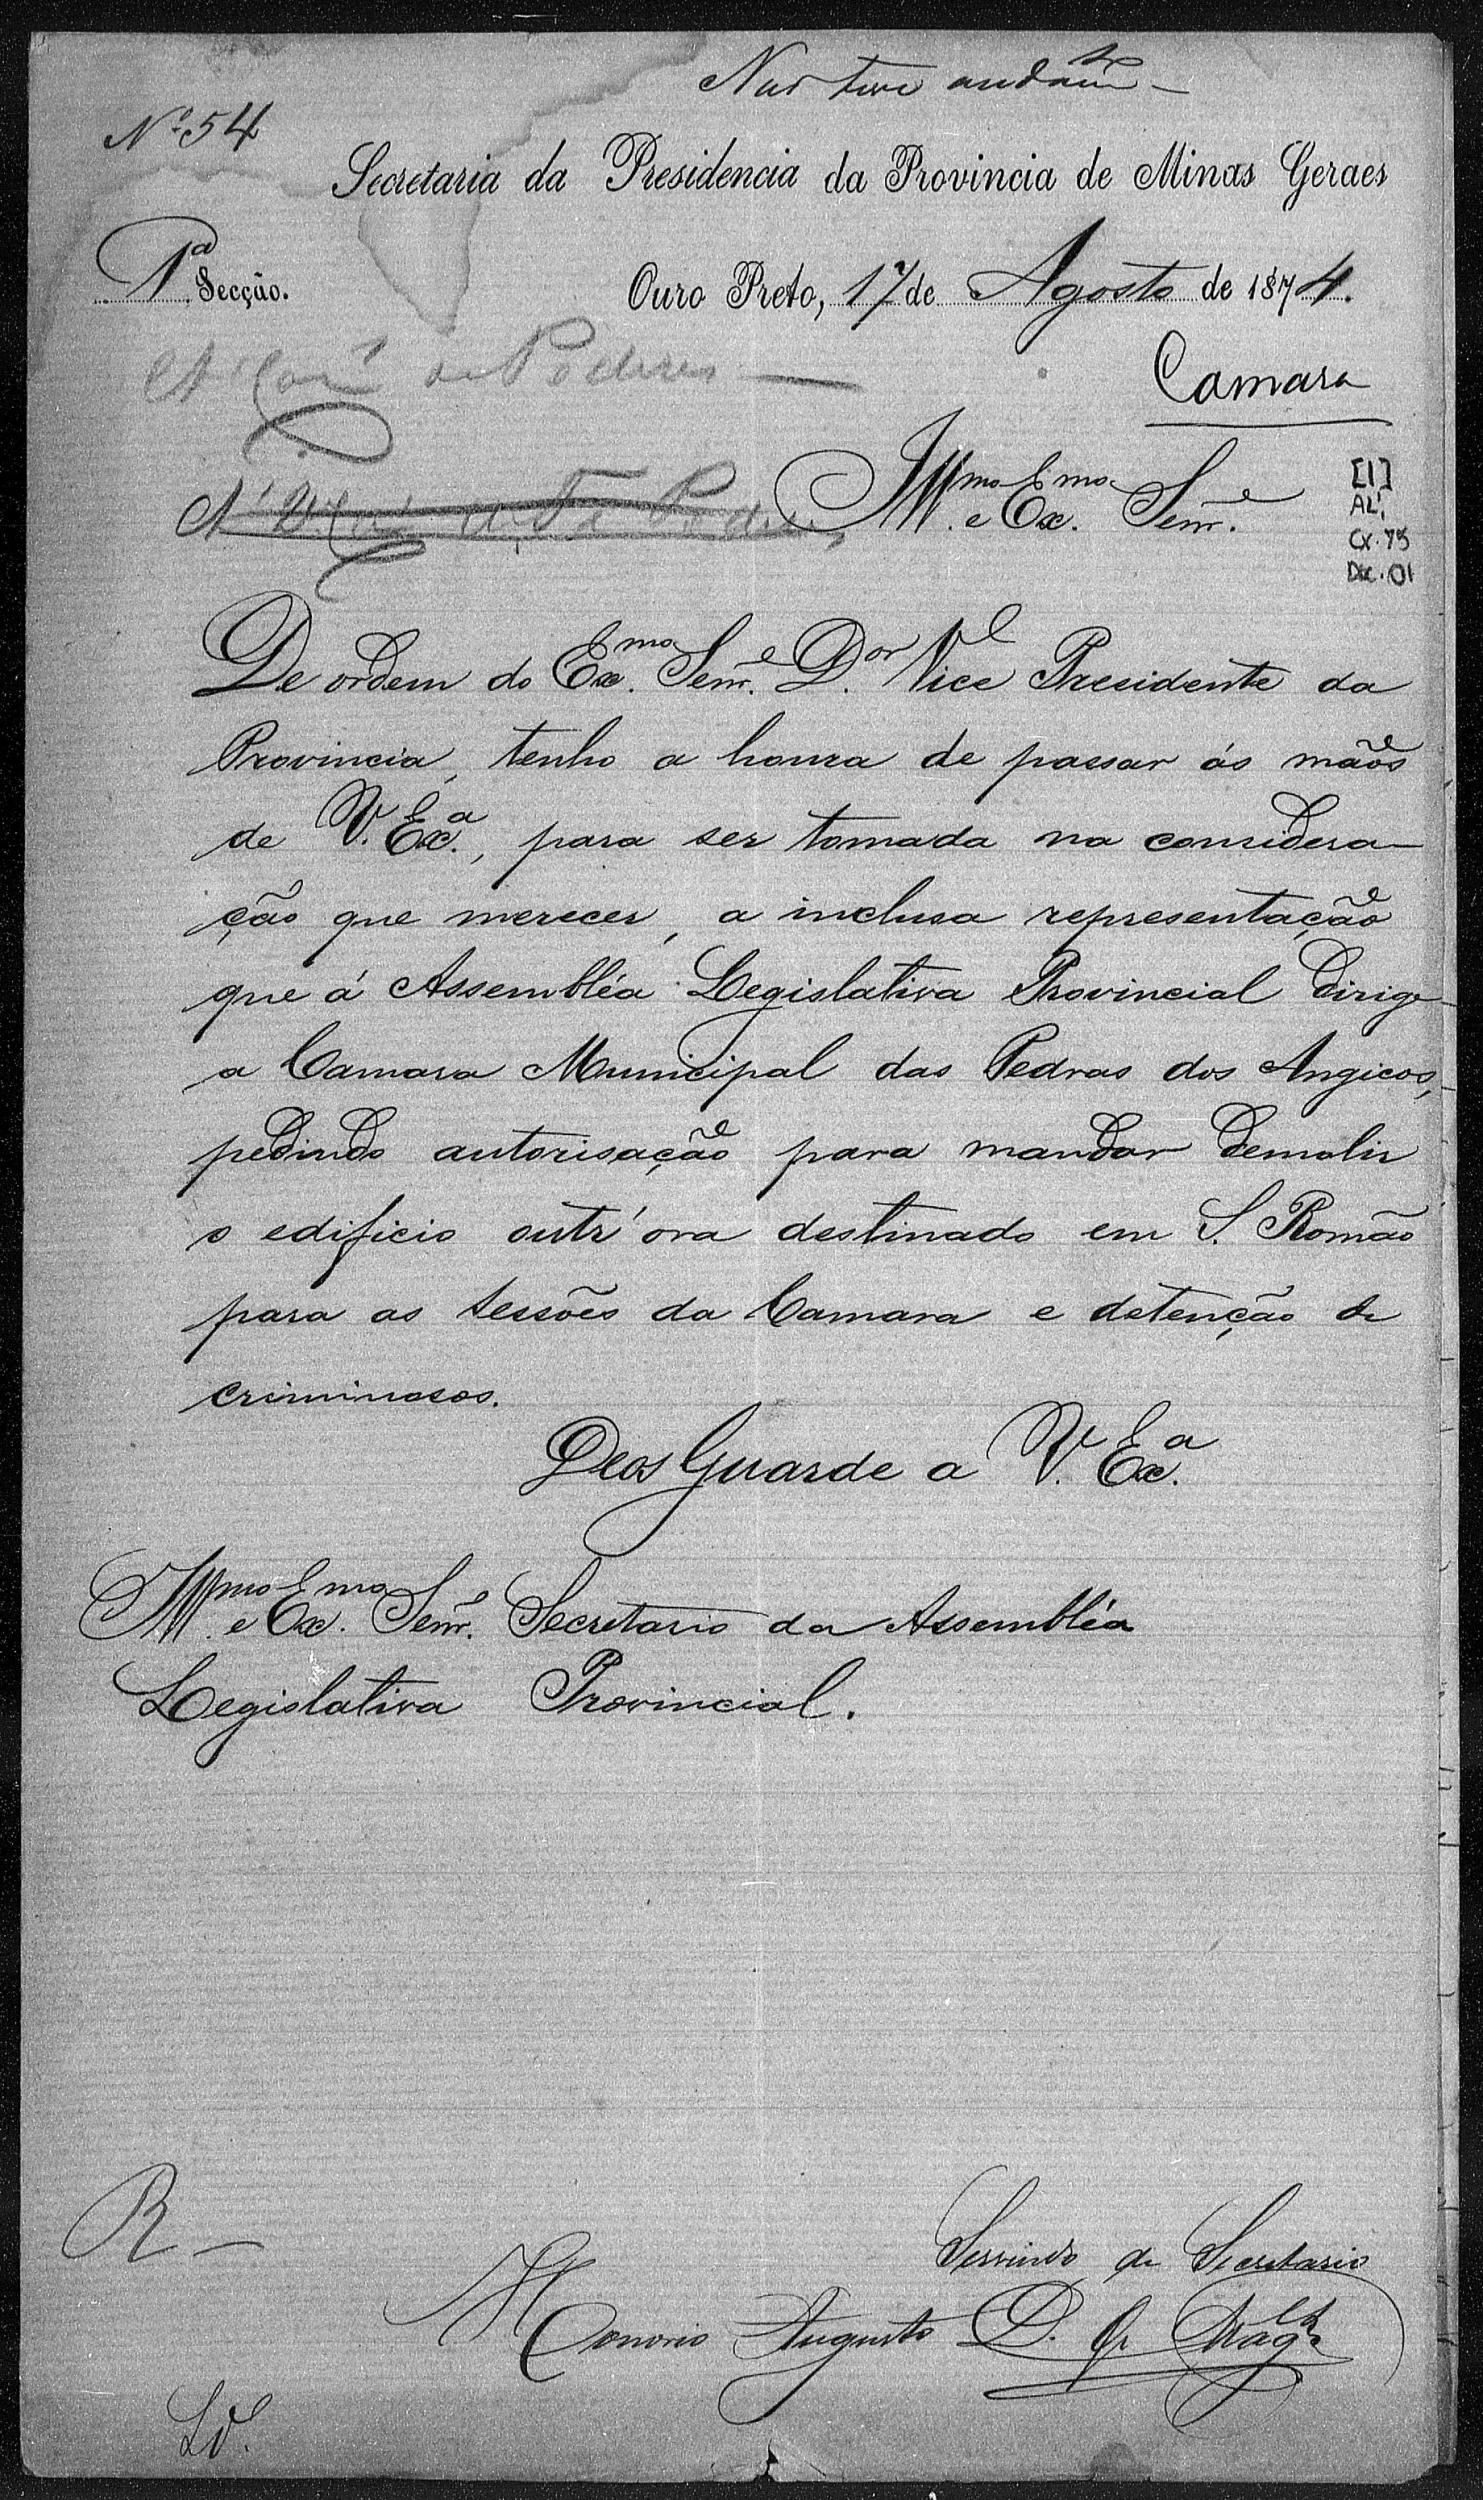 Não teve andam.to
Nº 54
Secretaria da Presidencia da Provincia de Minas Geraes
1ª Secção.
Ouro Preto, 17 de Agosto de 1874.
Camara
de Poderes
Illmo e Exmo. Senr.e
[1]
AL,
Cx. 75
Doc. 01
De ordem do Exmo. Senr.e Dor Vice Presidente da
Provincia, tenho a honra de passar ás mãos
de V. Exª., para ser tomada na considera-
ção que merecer, a inclusa representação
que á Assembléa Legislativa Provincial dirige
a Camara Municipal das Pedras dos Angicos,
pedindo autorisação para mandar demolir
o edificio outr'ora destinado em S. Romão
para as sessões da Camara e detenção de
criminosos.
Deos Guarde a V. Exª.
Illmo e Exmo. Senr.e Secretario da Assembléa
Legislativa Provincial.
R
Servindo de Secretario
Honorio Augusto D. de Mages